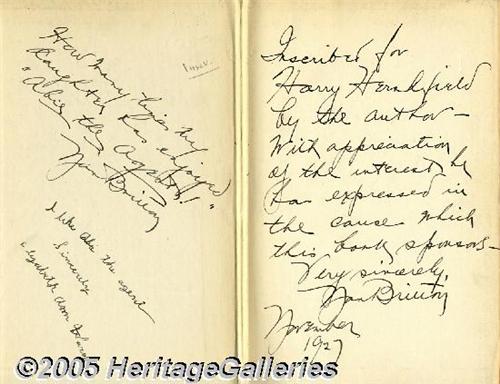 How many times my
daughter has enjoyed
"Abie the Agent"!
Nan Britton
I like Abe the agent
Sincerely
Elizabeth Ann
Inscribed for
Harry Hershfield
by the author —
With appreciation
of the interest he
has expressed in
the cause which
this book sponsors —
Very sincerely,
Nan Britton
November
1927
©2005 HeritageGalleries